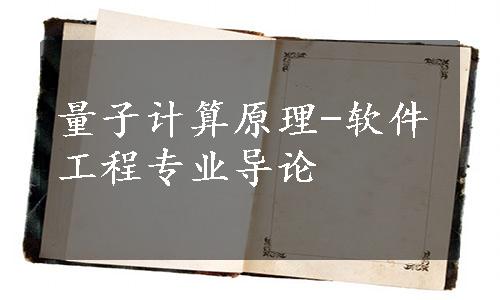 量子计算原理-软件
工程专业导论